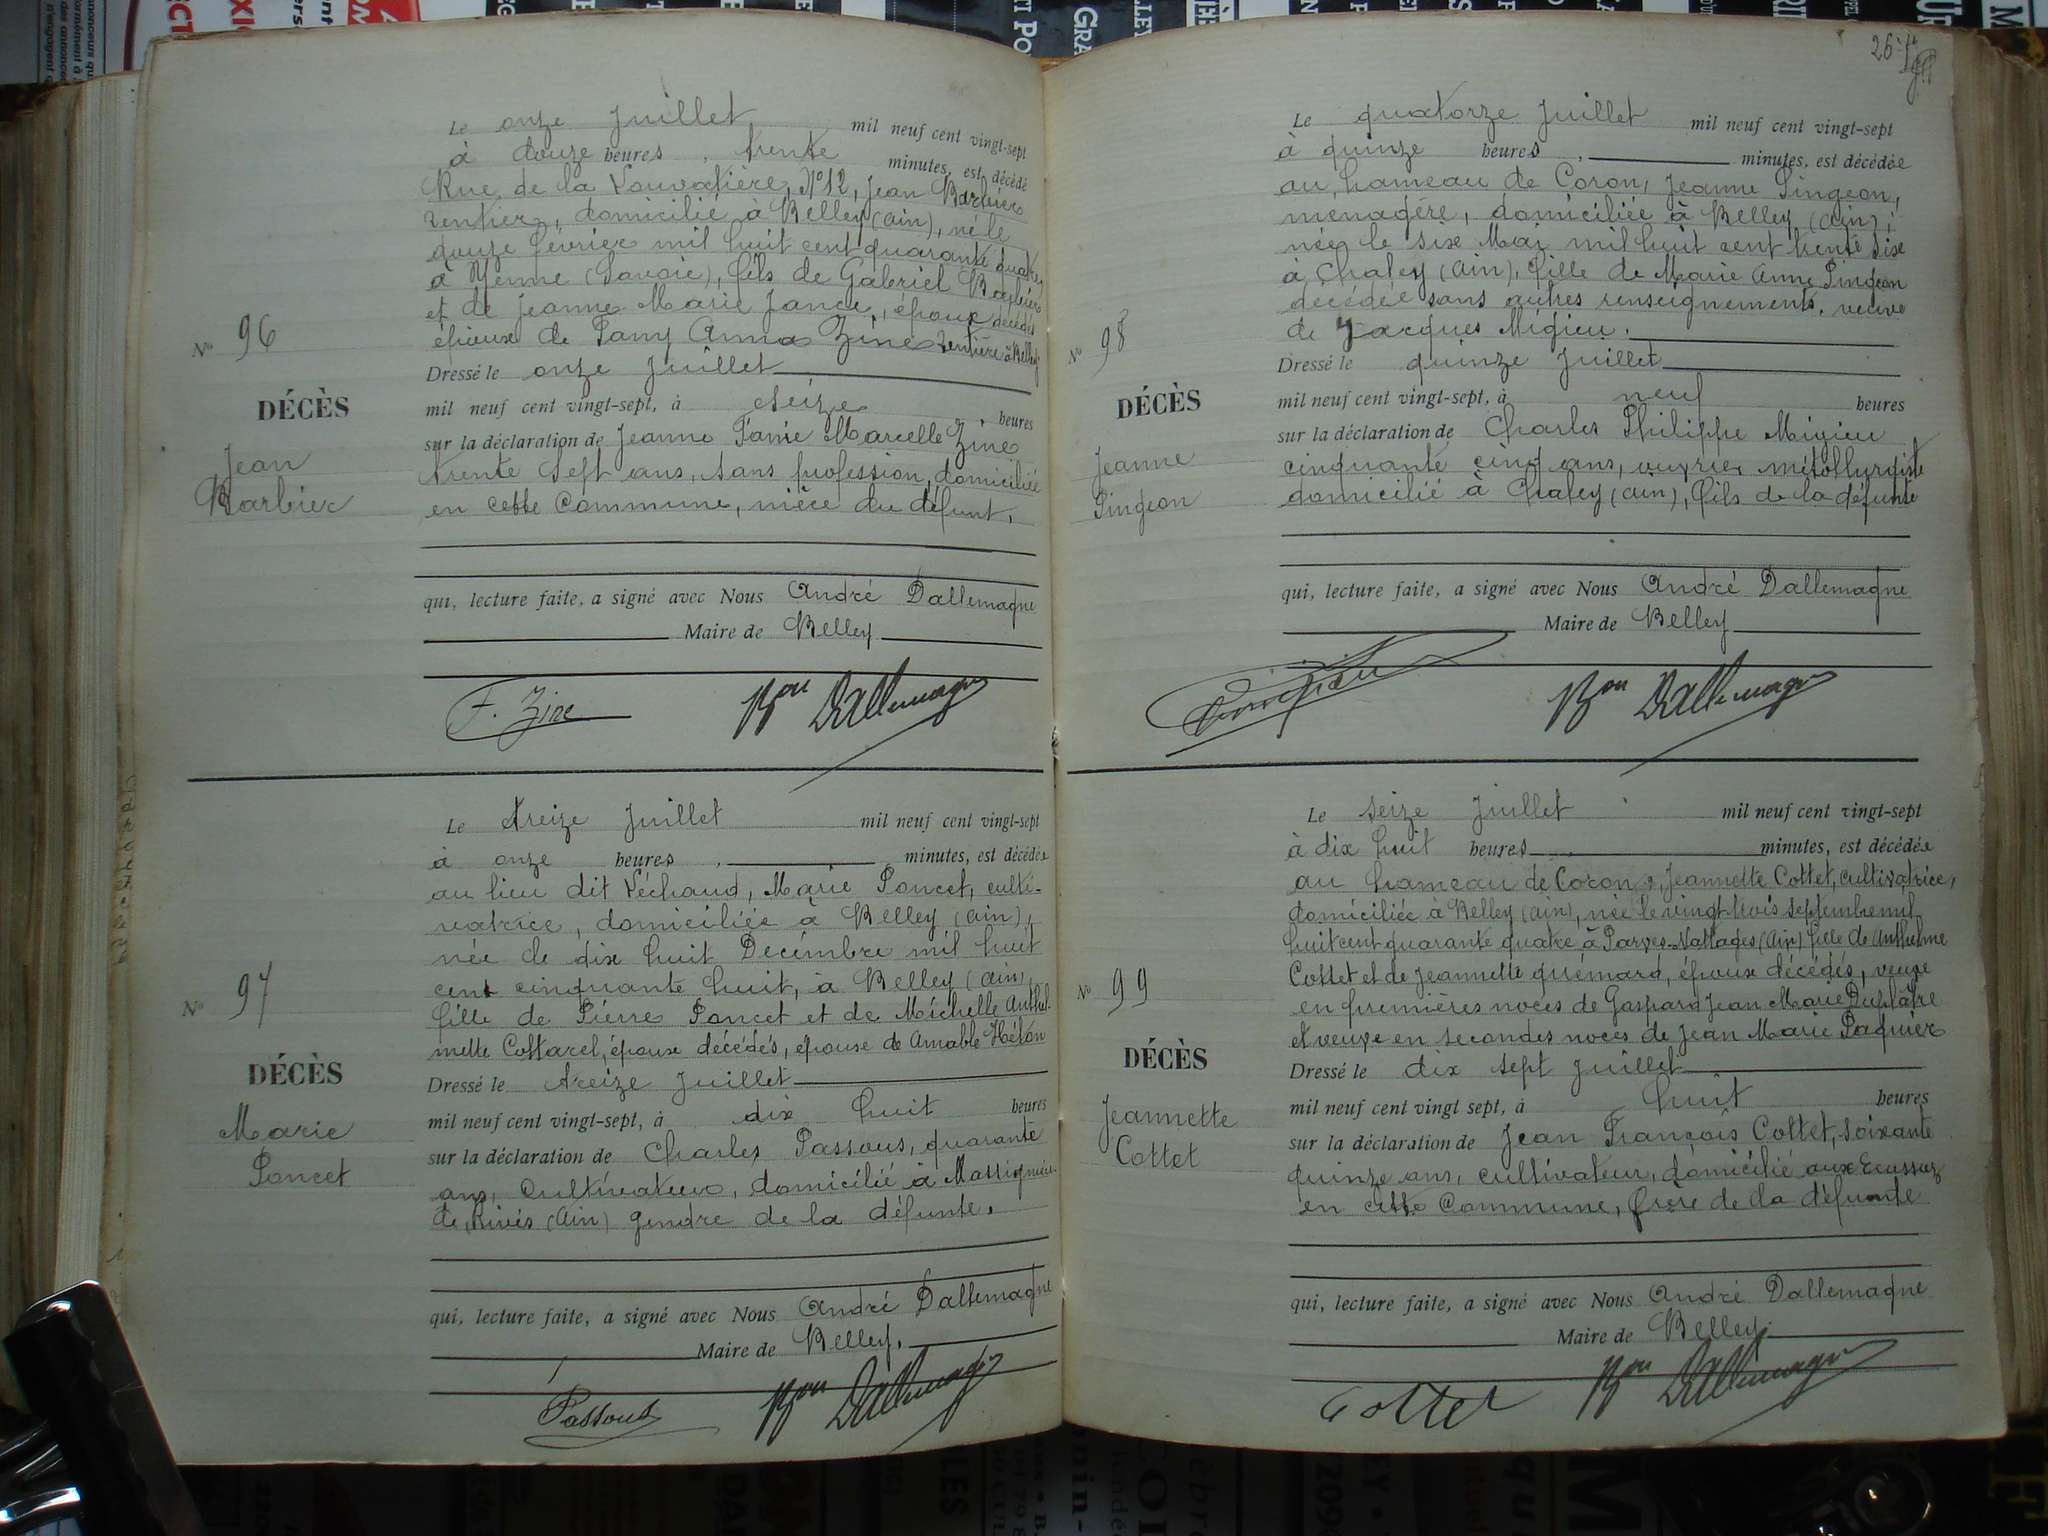 Le onze Juillet mil neuf cent vingt-sept
à douze heures, trente minutes, est décédé
Rue de la Louvatière, N° 12, Jean Barbier
rentier, domicilié à Belley (Ain), né le
douze février mil huit cent quarante quatre
à Yenne (Savoie), fils de Gabriel Barbier
et de Jeanne Marie Jance, époux décédés
époux de Fany Anna Zine rentière à Belley
N° 96
Dressé le onze Juillet
DÉCÈS
mil neuf cent vingt-sept, à seize heures
sur la déclaration de Jeanne Fanie Marcelle Zine
Jean
Barbier
trente sept ans, sans profession, domiciliée
en cette Commune, nièce du défunt,
qui, lecture faite, a signé avec Nous André Dallemagne
Maire de Belley
F. Zine Bon Dallemagne
Le treize Juillet mil neuf cent vingt-sept
à onze heures, minutes, est décédée
au lieu dit Péchaud, Marie Poncet, culti-
vatrice, domiciliée à Belley (Ain),
née le dix huit Décembre mil huit
cent cinquante huit, à Belley (Ain)
fille de Pierre Poncet et de Michelle Anthel-
mette Cottarel, époux décédés, épouse de Amable Héton
N° 97
Dressé le treize Juillet
DÉCÈS
mil neuf cent vingt-sept, à dix huit heures
Marie
Poncet
sur la déclaration de Charles Passous, quarante
ans, Cultivateur, domicilié à Massignieu-
de, Rives (Ain) gendre de la défunte.
qui, lecture faite, a signé avec Nous André Dallemagne
Maire de Belley.
Passous Bon Dallemagne
26
Le quatorze Juillet mil neuf cent vingt-sept
à quinze heures, minutes, est décédée
au hameau de Coron, Jeanne Pingeon,
ménagère, domiciliée à Belley (Ain),
née le six Mai mil huit cent trente six
à Chaley (Ain), fille de Marie Anne Pingeon
décédée sans autres renseignements, veuve
de Jacques Migieu.
N° 98
Dressé le quinze Juillet
DÉCÈS
mil neuf cent vingt-sept, à neuf heures
sur la déclaration de Charles Philippe Migieu
Jeanne
Pingeon
cinquante cinq ans, ouvrier métallurgiste
domicilié à Chaley (Ain), fils de la défunte
qui, lecture faite, a signé avec Nous André Dallemagne
Maire de Belley
Bon Dallemagne
Le seize Juillet mil neuf cent vingt-sept
à dix huit heures minutes, est décédée
au hameau de Coron, Jeannette Cottet, cultivatrice,
domiciliée à Belley (Ain), née le vingt trois septembre mil
huit cent quarante quatre à Parves-Nattages (Ain) fille de Anthelme
Cottet et de Jeannette Quémard, époux décédés, veuve
en premières noces de Gaspard Jean Marie Duplâtre
et veuve en secondes noces de Jean Marie Paquier
N° 99
Dressé le dix sept Juillet
DÉCÈS
mil neuf cent vingt sept, à huit heures
Jeannette
Cottet
sur la déclaration de Jean François Cottet, soixante
quinze ans, cultivateur, domicilié aux Ecassaz
en cette Commune, frère de la défunte
qui, lecture faite, a signé avec Nous André Dallemagne
Maire de Belley.
Cottet Bon Dallemagne